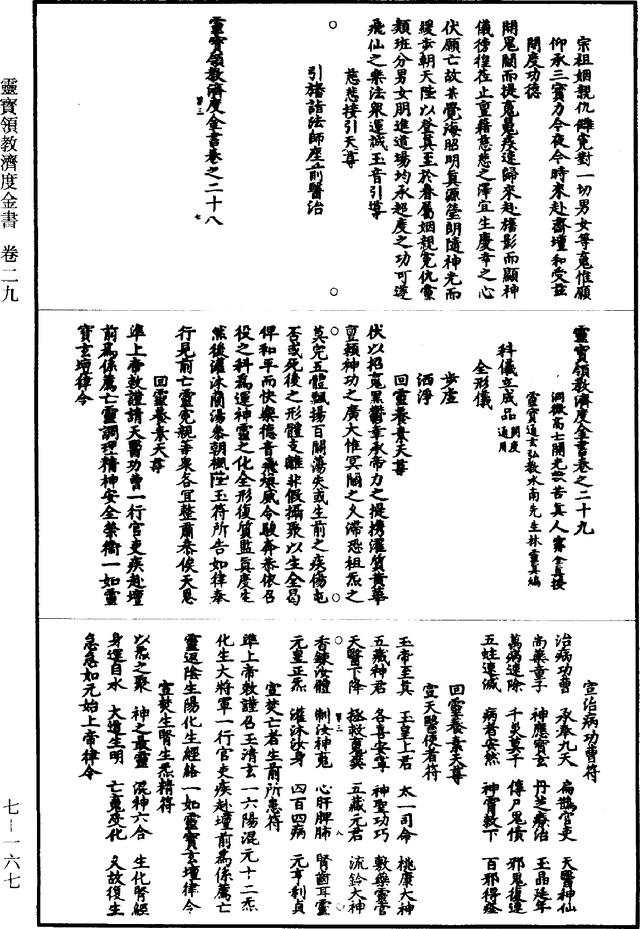 宗祖姻親仇讎冤對一切男女等䰟惟願
仰承三寶力今夜今時來赴齋壇和受茲
開度功德
開鬼關而提䰟䰟疾速歸來赴旛影而顯神
儀徬徨在止亶藉慈悲之澤宜生慶幸之心
伏願亡故某覺海昭明真源瑩朗隨神光而
緩步朝天陛以登真至於眷屬姻親冤仇黨
類班分男女朋進道場均承超度之功可遂
飛仙之樂法衆運誠玉音引導
慈悲接引天尊
引旛詣法師座前醫治
靈寶領教濟度金書卷之二十八
靈寶領教濟度金書卷之二十九
洞微高士開光救苦真人甯全真授
靈寶通玄弘教水南先生林靈真編
科儀立成品 開度通用
全形儀
步虛
洒淨
回靈養素天尊
伏以招䰟黑鬱幸承帝力之提攜濯質黃華
亶賴神功之廣大惟冥關之久滯恐祖炁之
莫完五體飄揚百關蕩失或生前之疾傷屯
否或死後之形體支離非假攝聚以生全曷
俾和平而快樂德音飛壞威令駿奔恭依召
役之科爲運神靈之化全形復質監真度生
然後灌沐蘭湯叅朝楓陛玉符所告如律奉
行見前亡靈冤親等衆各宜整肅恭俟天恩
回靈養素天尊
準上帝敕謹請天醫功曹一行官吏疾赴壇
前爲係薦亡靈調理精神安全榮衛一如靈
寶玄壇律令
宣治病功曹符
治病功曹 承奉九天 扁鵲官吏 天醫神仙
尚藥童子 神應寶玄 丹芝療治 玉晶延年
萬病速除 千災莫干 傳尸鬼債 邪鬼復連
五蛀速滅 病者安然 神霄敕下 百邪得痊
回靈養素天尊
宣天醫使者符
玉帝至真 玉皇上君 太一司命 桃康大神
五藏神君 各喜安寧 神聖功巧 敷藥靈官
天醫下降 拯救䰟爽 五藏元君 流鈴大神
香鍊汝體 制汝神䰟 心肝脾肺 腎齒耳靈
元皇正炁 灌沐汝身 四百四病 元亨利貞
宣焚亡者生前所患符
準上帝敕謹召玉清玄一六陽混元十二炁
化生大將軍一行官吏疾赴壇前爲係薦亡
靈返陰生陽化生經絡一如靈寶玄壇律令
宣焚生腎生炁精符
以炁之聚 神之最靈 混神六合 生化腎經
身運自水 大道生明 亡䰟受化 又故復生
急急如元始上帝律令
靈寶領教濟度金書 卷二九
七—一六七